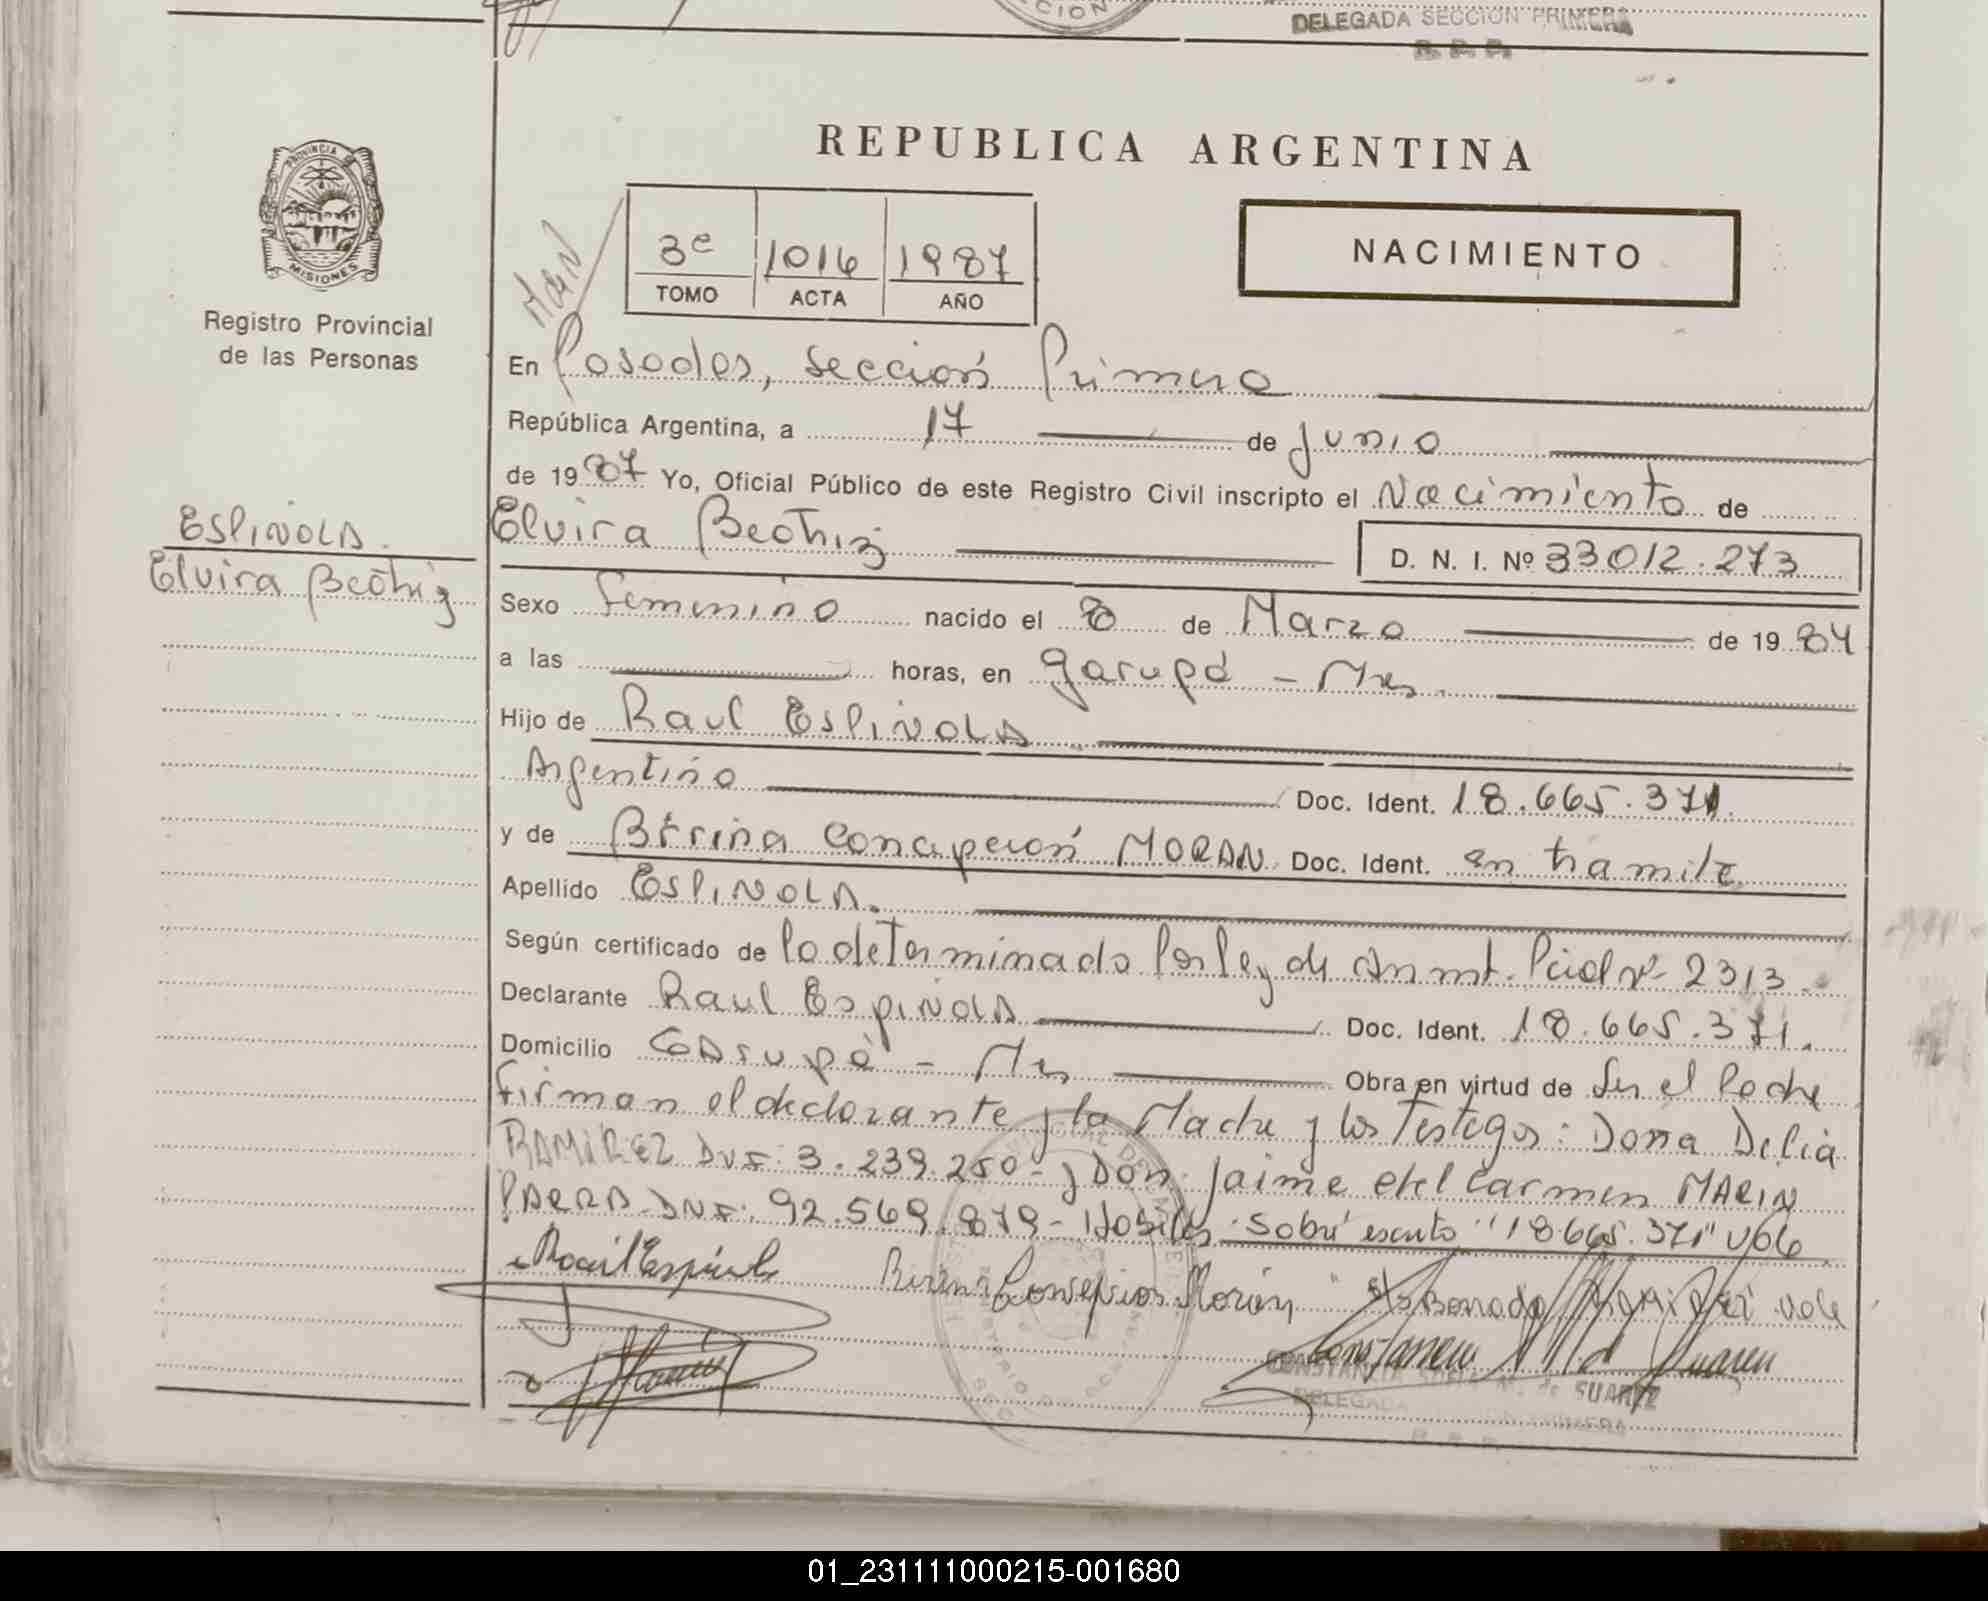 CION
DELEGADA SECCION PRIMERA
R. P. P.
REPUBLICA ARGENTINA
PROVINCIA DE
MISIONES
Registro Provincial
de las Personas
3e 1016 1987
TOMO ACTA AÑO
NACIMIENTO
En Posadas, Sección Primera
República Argentina, a 17 de Junio
de 1987 Yo, Oficial Público de este Registro Civil inscripto el Nacimiento de
ESPINOLA.
Elvira Beatriz
Elvira Beatriz D. N. I. Nº 33012.273
Sexo Femenino nacido el 8 de Marzo de 1984
a las horas, en Garupá - Mnes.
Hijo de Raul ESPINOLA
Argentino Doc. Ident. 18.665.371.
y de Concepción MORAN Doc. Ident. en tramite
Apellido ESPINOLA.
Según certificado de lo determinado Por ley de Amnt. Pcial Nº 2313.
Declarante Raul ESPINOLA Doc. Ident. 18.665.371.
Domicilio Garupá - Mnes Obra en virtud de Ser el Padre
Firman el declarante y la Madre y los Testigos: Doña Delia
RAMIREZ DNI: 3.239.250- y Don Jaime del Carmen MARIN
PARRA-DNI: 92.569.879- Habiles. Sobre escrito "18665.371" Vale
Raul Espinola Morán Borrado Vale
Constancia M. d Suarez
CONSTANCIA SOFIA M. de SUAREZ
DELEGADA SECCION PRIMERA
R. P. P.
01_231111000215-001680